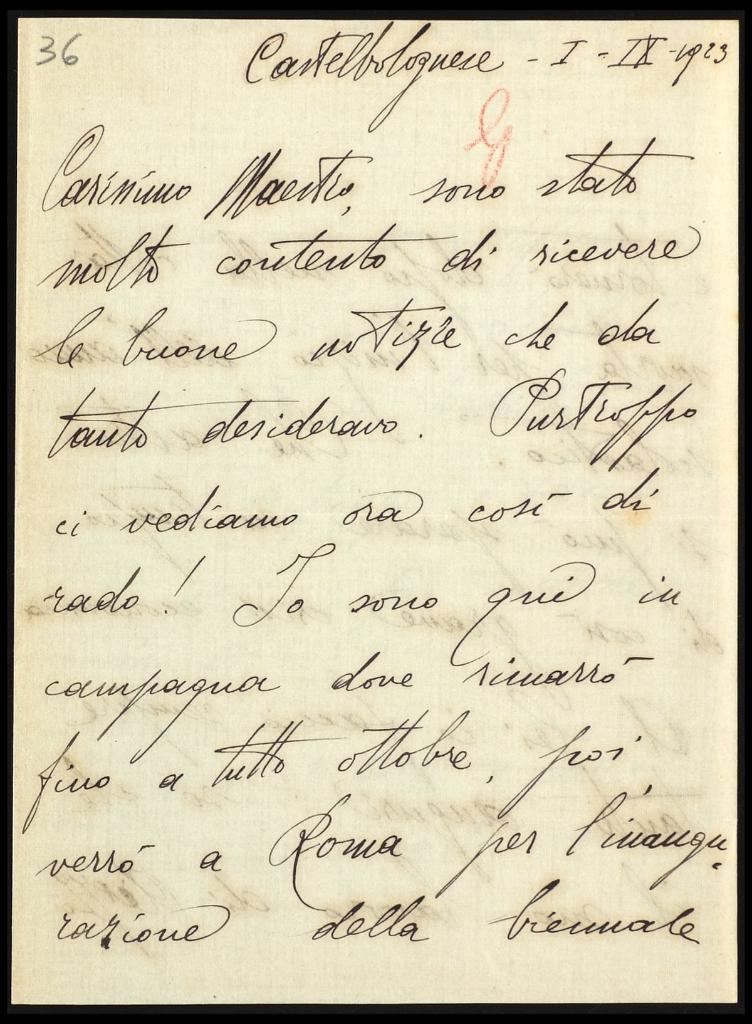 36
Castelbolognese - I - IX - 1923
G
Carissimo Maestro, sono stato
molto contento di ricevere
le buone notizie che da
tanto desideravo. Purtroppo
ci vediamo ora così di
rado! Io sono qui in
campagna dove rimarrò
fino a tutto ottobre, poi
verrò a Roma per l'inaugu=
razione della biennale